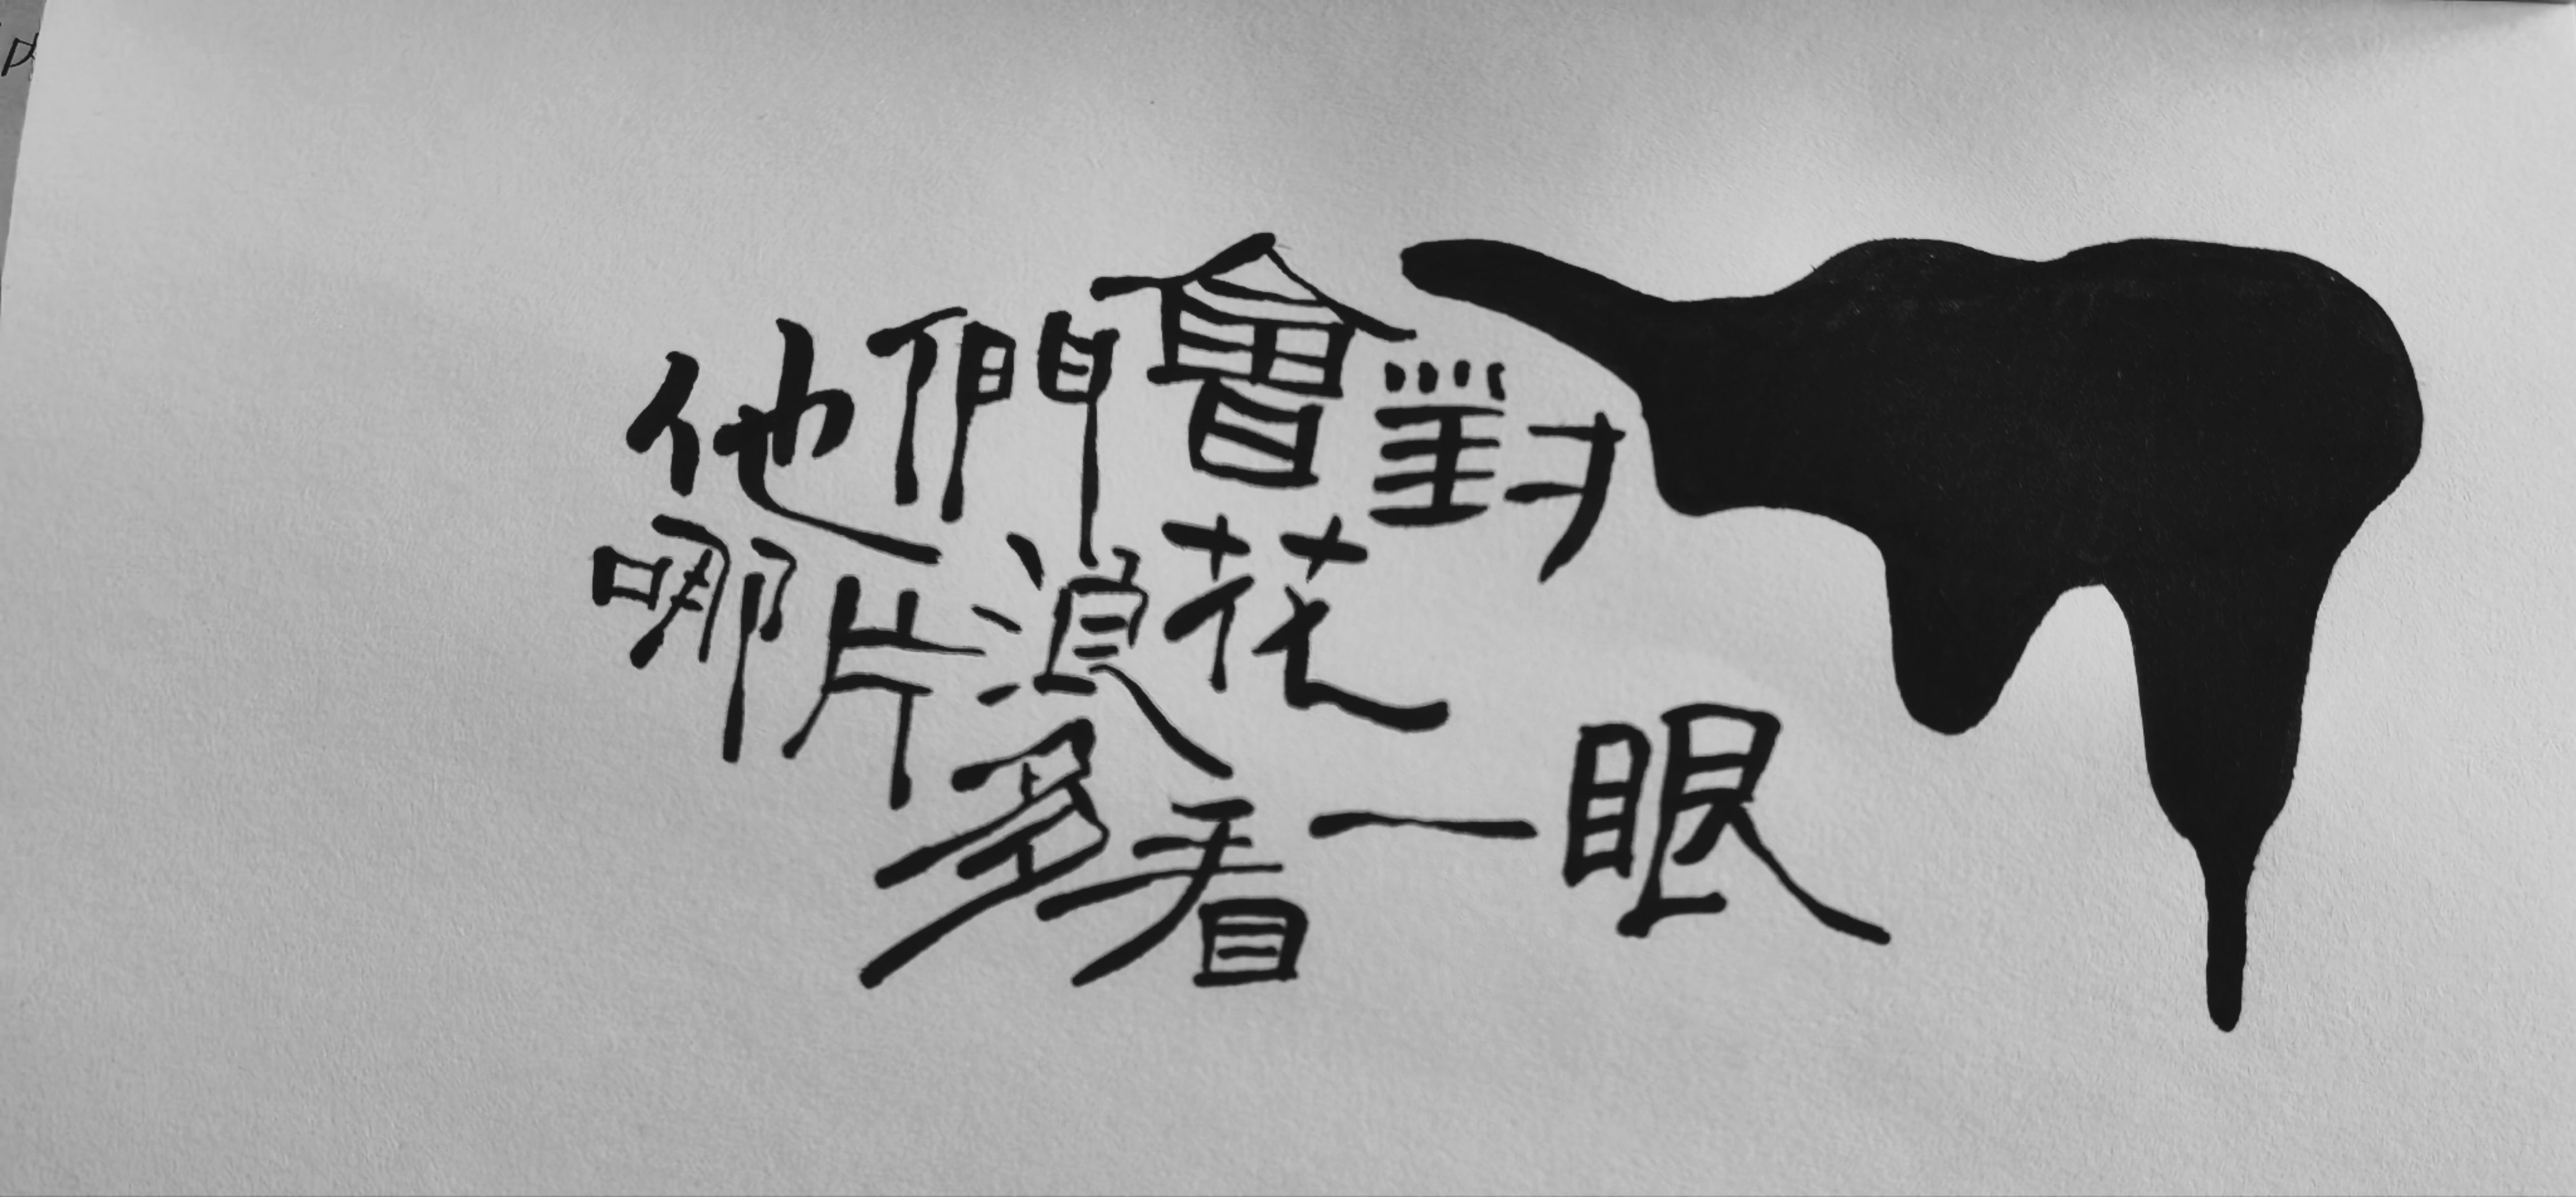 他們會對
哪片浪花
多看一眼